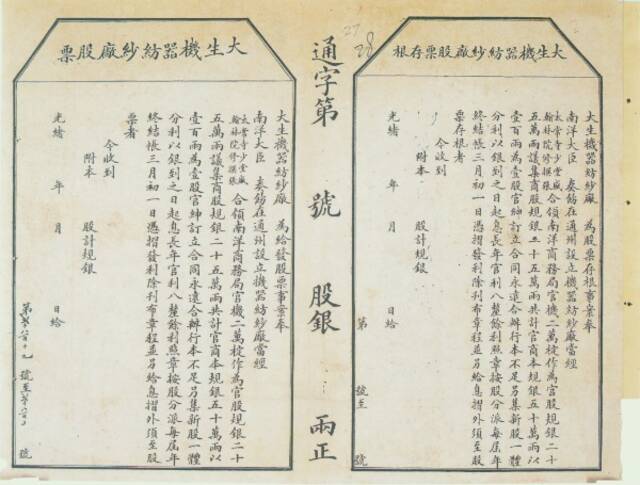 大生機器紡紗廠股票存根
大生機器紡紗廠 為股票存根事案奉
南洋大臣 奏飭在通州設立機器紡紗廠當經
太常寺少堂盛
翰林院修撰張
合領南洋商務局官機二萬梃作為官股規銀二十
五萬兩議集商股規銀二十五萬兩共計官商本規銀五十萬兩以
壹百兩為壹股官紳訂立合同永遠合辦行本不足另集新股一體
分利以銀到之日起息長年官利八釐餘利照章按股分派每屆年
終結帳三月初一日憑摺發利除刊布章程並另給息摺外須至股
票存根者
今收到
附本 股計規銀
光緒 年 月 日給
第 號至 號
27
28
通字第 號 股銀 兩正
大生機器紡紗廠股票
大生機器紡紗廠 為給發股票事案奉
南洋大臣 奏飭在通州設立機器紡紗廠當經
太常寺少堂盛
翰林院修撰張
合領南洋商務局官機二萬梃作為官股規銀二十
五萬兩議集商股規銀二十五萬兩共計官商本規銀五十萬兩以
壹百兩為壹股官紳訂立合同永遠合辦行本不足另集新股一體
分利以銀到之日起息長年官利八釐餘利照章按股分派每屆年
終結帳三月初一日憑摺發利除刊布章程並另給息摺外須至股
票者
今收到
附本 股計規銀
光緒 年 月 日給
第 號至 號